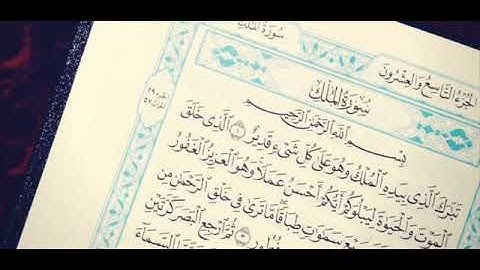 سُورَةُ المُلْكِ
الجُزْءُ التَّاسِعُ وَالعِشْرُونَ
سُورَةُ المُلْكِ
بِسْمِ اللَّهِ الرَّحْمَٰنِ الرَّحِيمِ
تَبَٰرَكَ الَّذِى بِيَدِهِ الْمُلْكُ وَهُوَ عَلَىٰ كُلِّ شَىْءٍ قَدِيرٌ ١ الَّذِى خَلَقَ
الْمَوْتَ وَالْحَيَوٰةَ لِيَبْلُوَكُمْ أَيُّكُمْ أَحْسَنُ عَمَلًا وَهُوَ الْعَزِيزُ الْغَفُورُ
سَبْعَ سَمَٰوَٰتٍ طِبَاقًا مَّا تَرَىٰ فِى خَلْقِ الرَّحْمَٰنِ مِن
فُطُورٍ ٣ ثُمَّ ارْجِعِ الْبَصَرَ كَرَّتَيْنِ
السَّمَآءَ